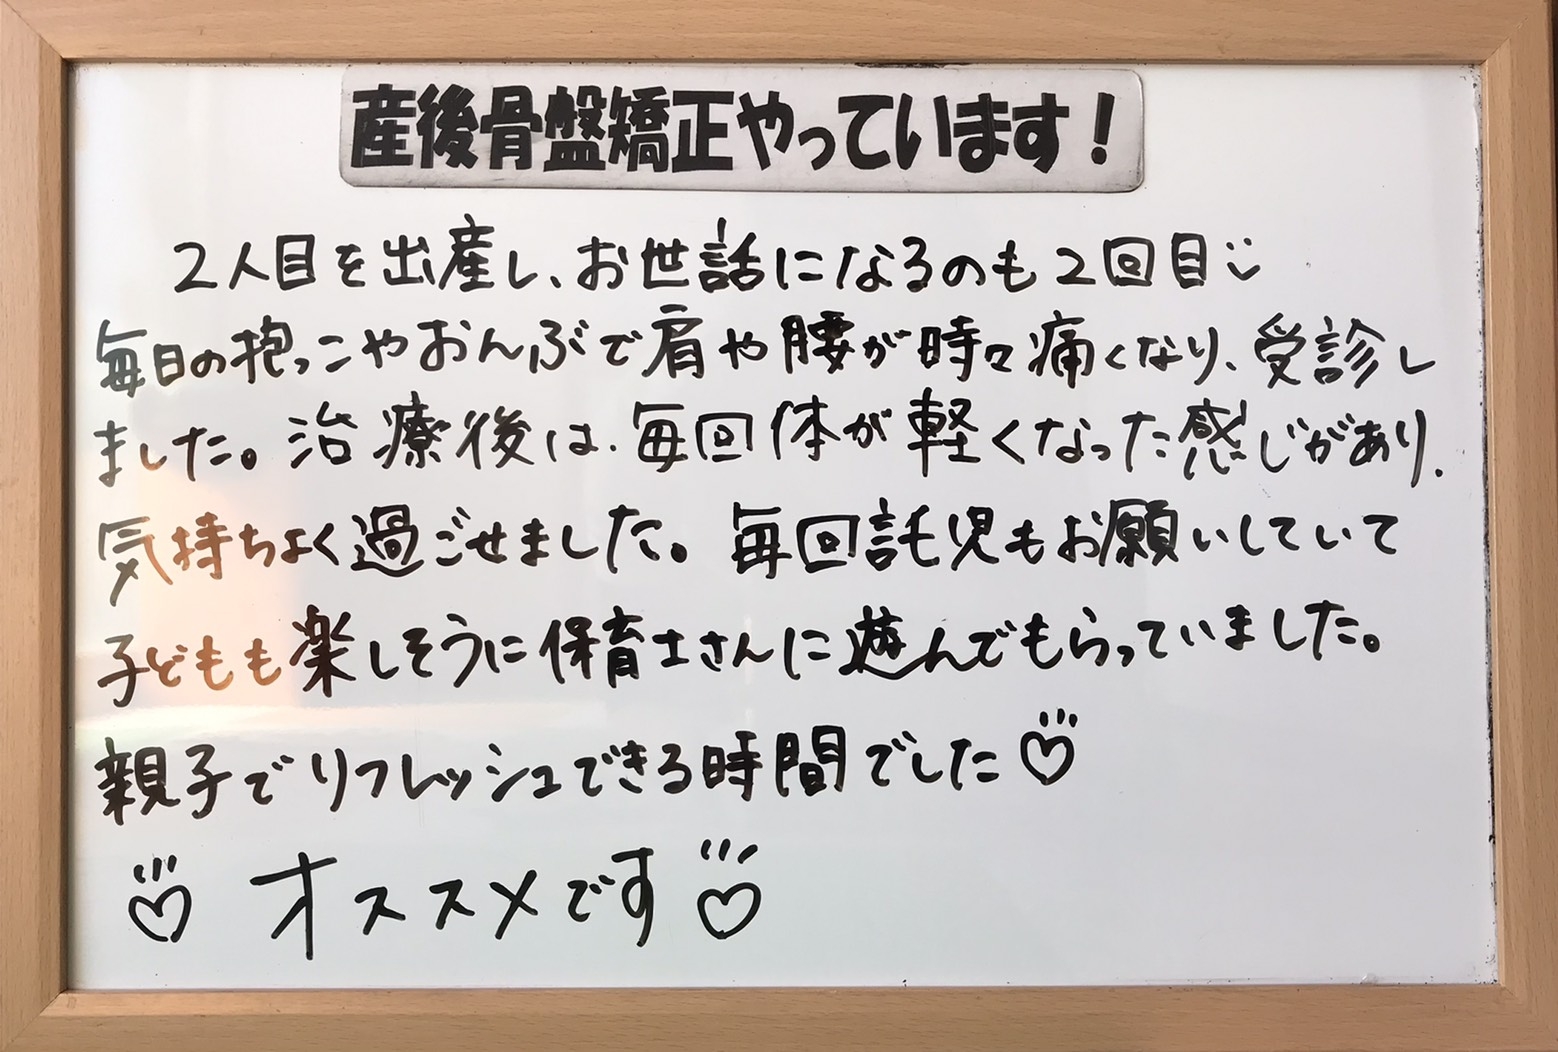 産後骨盤矯正やっています!
2人目を出産し、お世話になるのも2回目
毎日の抱っこやおんぶで肩や腰が時々痛くなり、受診し
ました。治療後は、毎回体が軽くなった感じがあり、
気持ちよく過ごせました。毎回託児もお願いしていて
子どもも楽しそうに保育士さんに遊んでもらっていました。
親子でリフレッシュできる時間でした♡
♡ オススメです ♡